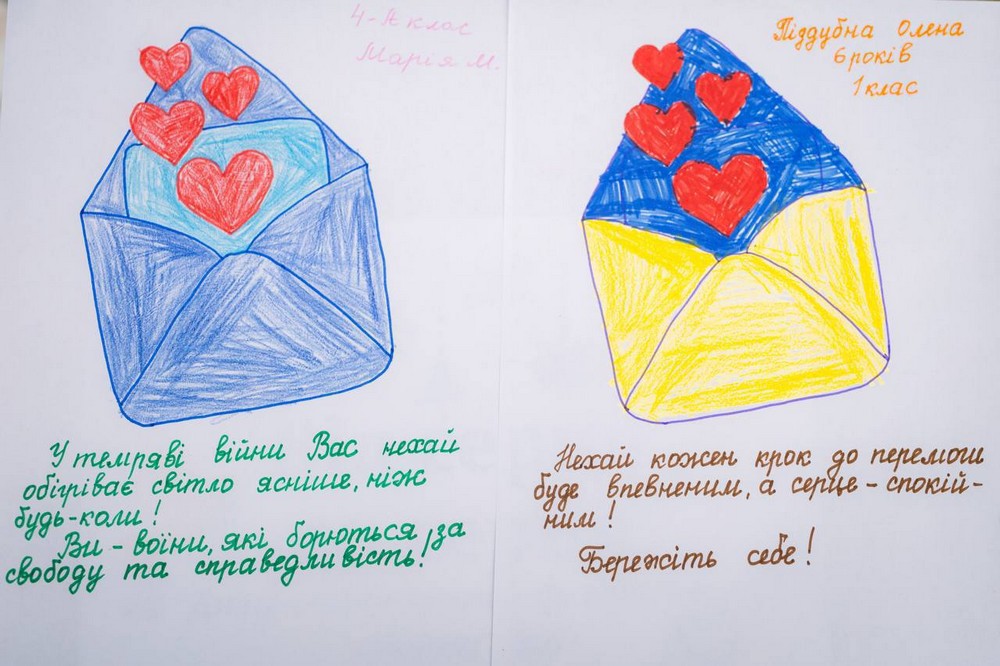 4-А клас
Марія М.
У темряві війни Вас нехай
обігріває світло ясніше, ніж
будь-коли!
Ви - воїни, які борються за
свободу та справедливість!
Піддубна Олена
6 років
1 клас
Нехай кожен крок до перемоги
буде впевненим, а серце - спокій-
ним!
Бережіть себе!